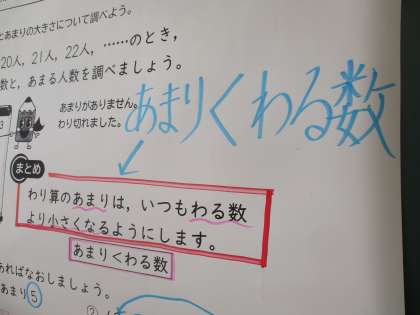 とあまりの大きさについて調べよう。
20人，21人，22人，……のとき，
数と，あまる人数を調べましょう。
3
あまりがありません。
わり切れました。
あまり<わる数
まとめ
わり算のあまりは，いつもわる数
より小さくなるようにします。
あまり<わる数
あればなおしましょう。
あまり5
②